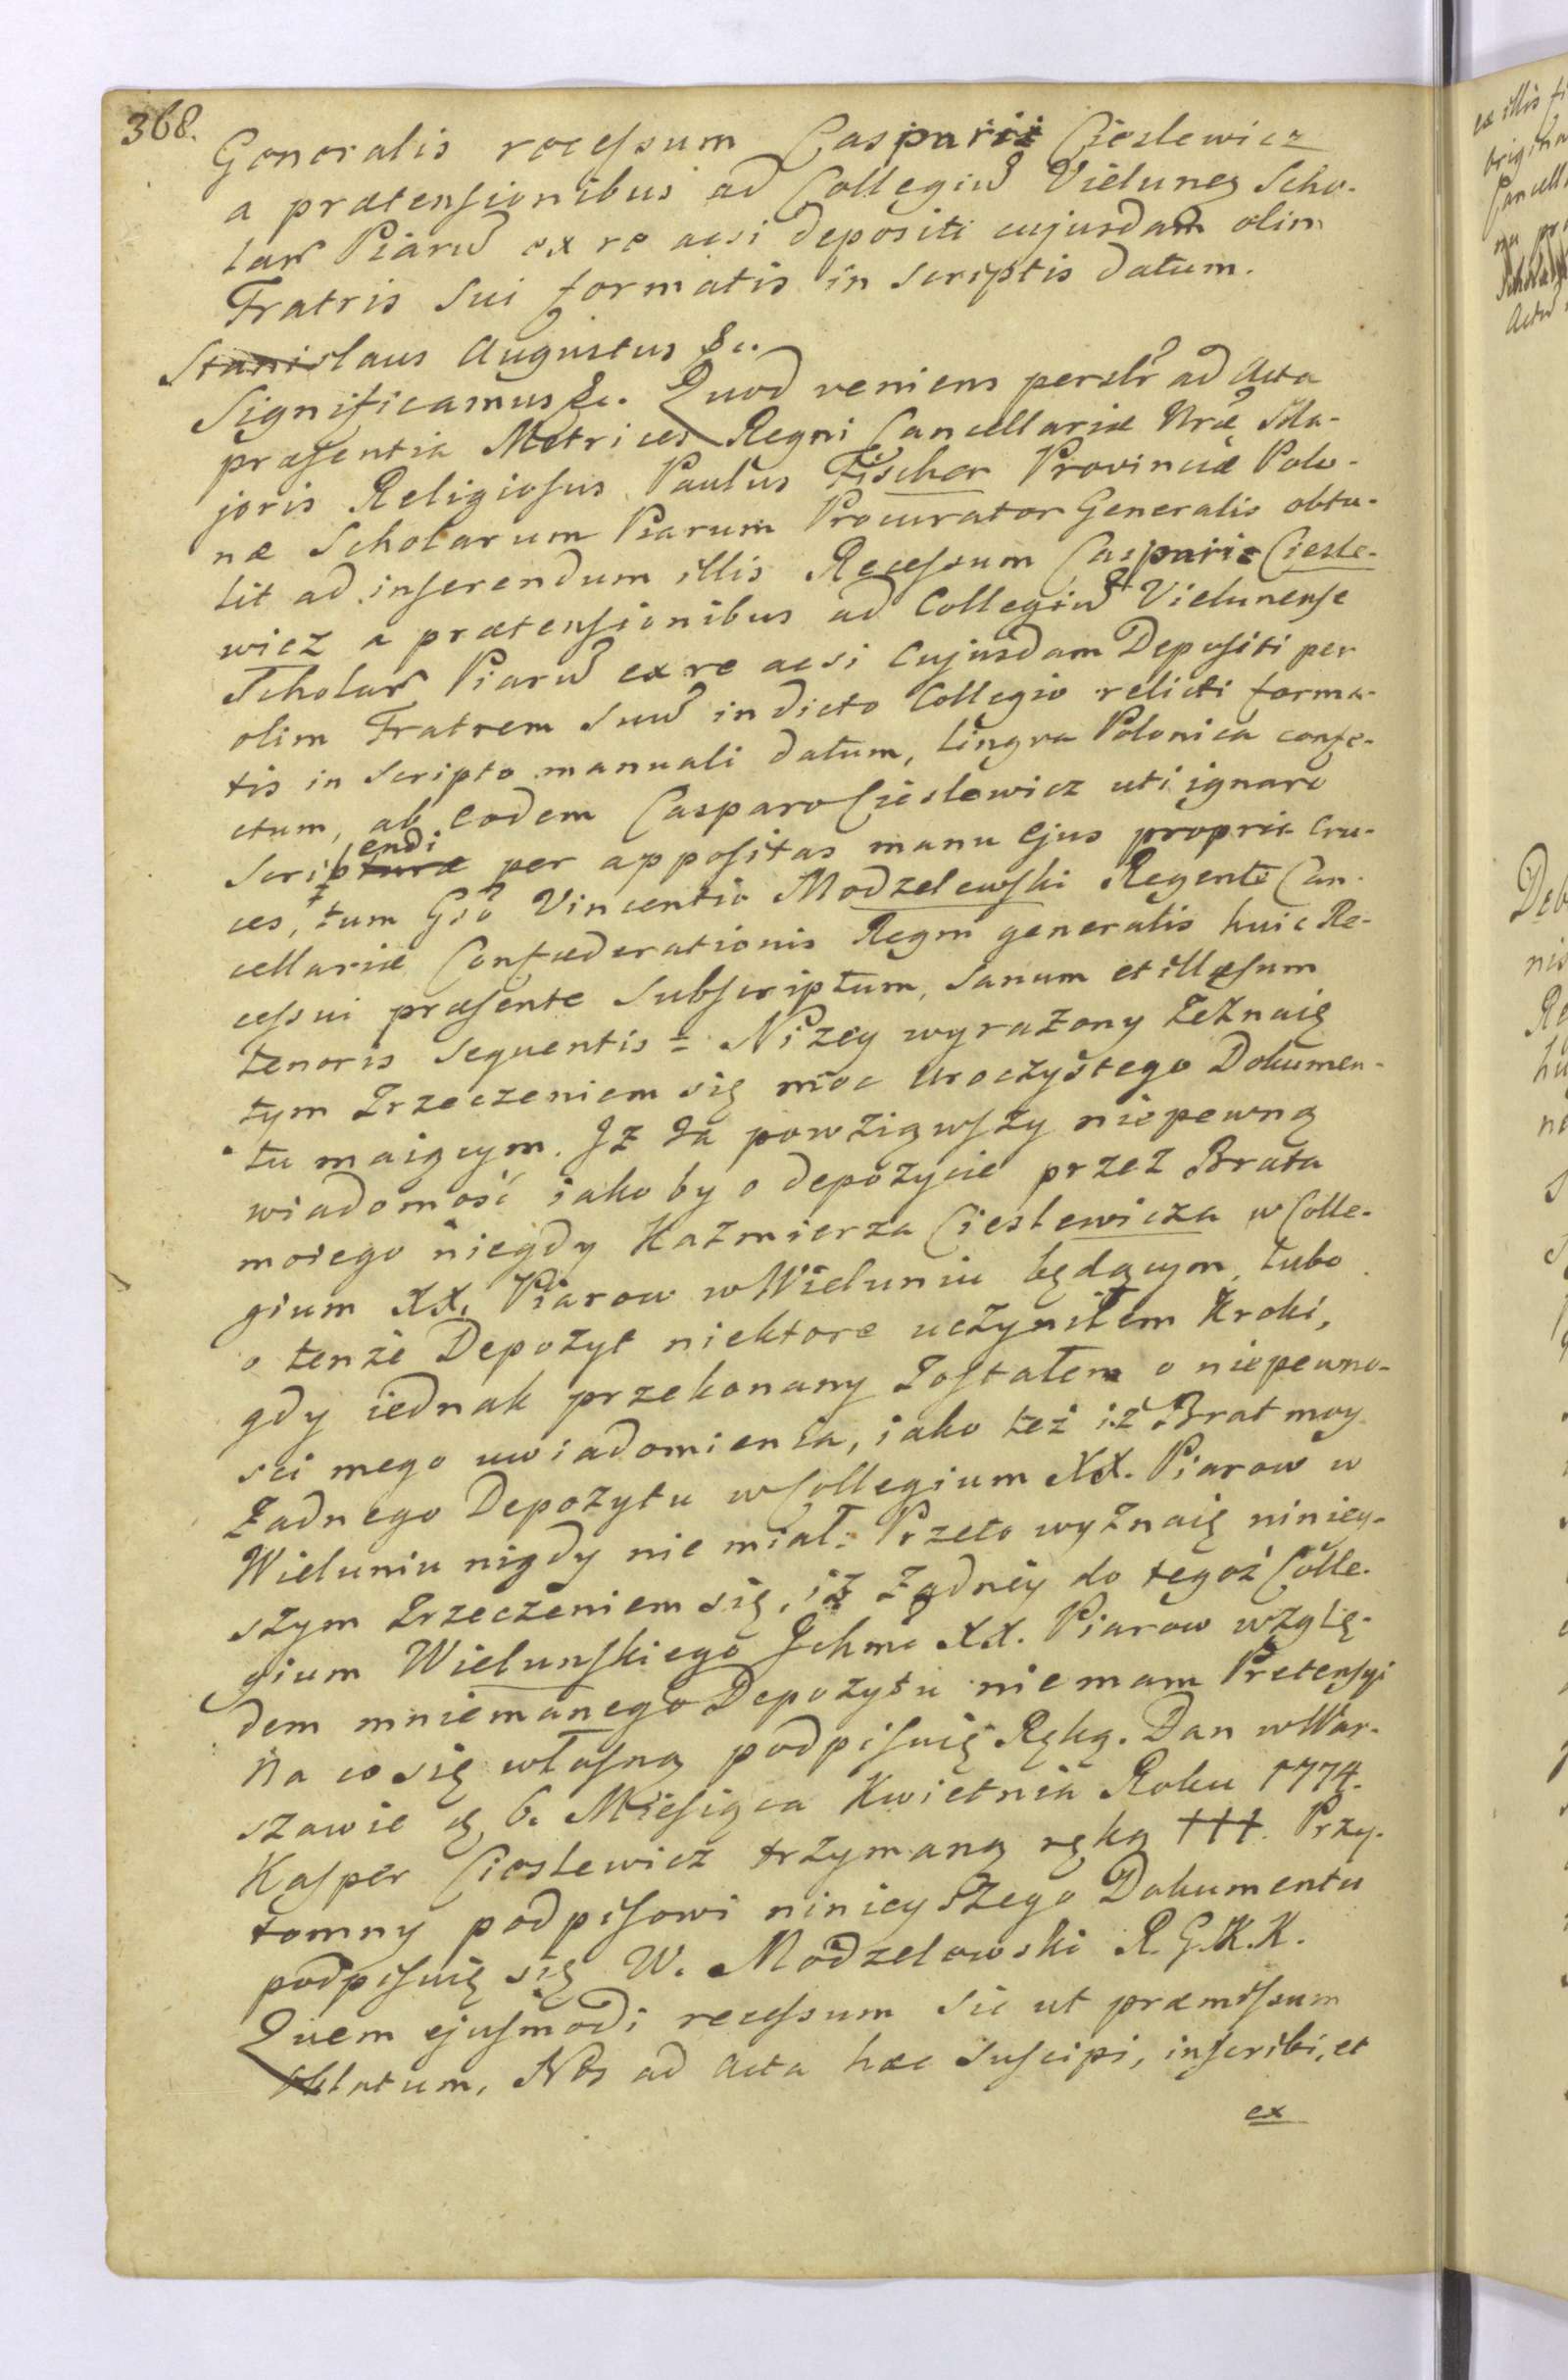 368.
Generalis recessum Casparis Cieslewicz
a prætensionibus ad Collegiu͞ Vielunes Scho-
lar͞ Piaru͞ ex re acsi depositi cujusdam olim
Fratris Sui formatis in Scriptis datum.
Stanislaus Augustus &c.
Significamus &c. Quod veniens personlr͞ ad Acta
præsentia Metrices Regni Cancellariæ Nræ Ma-
joris Religiosus Paulus Fischer Provinciæ Polo-
næ Scholarum Piarum Procurator Generalis obtu-
lit ad inserendum illis Recessum Casparis Ciesle-
wicz a prætensionibus ad Collegiu͞ Vielunense
Scholar͞ Piaru͞ ex re acsi Cujusdam Depositi per
olim Fratrem Suu͞ in dicto Collegio relicti forma-
tis in Scripto manuali datum, lingva Polonica confe-
ctum, ab eodem Casparo Cieslewicz uti ignaro
Scribendi per appositas manu ejus propria Cru-
ces, tum Gso Vincentio Modzelewski Regente Can-
cellariæ Confæderationis Regni generalis huic Re-
cessui præsente Subscriptum, Sanum et illæsum
tenoris Sequentis = Nizey wyrażony zeznaię
tym Zrzeczeniem się moc Uroczystego Dokumen-
tu maiącym. Iż Ja powziąwszy niepewną
wiadomość iakoby o depozycie przez Brata
moiego niegdy Kazmierza Cieslewicza w Colle-
gium XX. Piarow w Wieluniu będącym, lubo
o tenże Depozyt niektore uczyniłem Kroki,
gdy iednak przekonany Zostałem o niepewno-
sci mego uwiadomienia, iako też iż Brat moy
Żadnego Depozytu w Collegium XX. Piarow w
Wieluniu nigdy nie miał: Przeto wyznaię niniey-
szym Zrzeczeniem się, iż Żadney do tegoż Colle-
gium Wielunskiego Ichmc XX. Piarow wzglę-
dem mniemanego Depozytu nie mam Pretensyi
Na co się własną podpisuię Ręką. Dan w War-
szawie d. 6. Miesiąca Kwietnia Roku 1774.
Kasper Cieslewicz trzymaną ręką +++. Przy-
tomny podpisowi ninieyszego Dokumentu
podpisuię się W. Modzelewski R.G.K.K.
Quem ejusmodi recessum sic ut præmissum
oblatum, Nos ad Acta hæc Suscipi, inscribi, et
ex